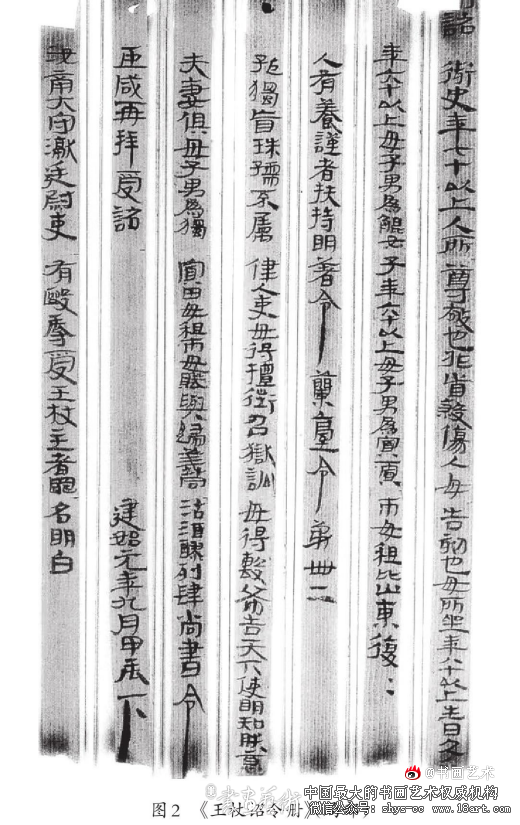 詔 御史年七十以上人所尊敬也非首殺傷人毋告劾也毋所坐年八十以上生日久
年六十以上毋子男為鯤女子年六十以上毋子男為寡賈市毋租比山東復=
人有養謹者扶持明著令 蘭臺令第卌二
孤獨盲珠孺不屬律人吏毋得擅徵召獄訟毋得毄布告天下使明知朕意
夫妻俱毋子男為獨寡田毋租市毋賦與歸義同沽酒醪列肆尚書令
臣咸再拜受詔 建始元年九月甲辰下
汝南大守讞廷尉吏有毆辱受王杖主者罪名明白
@书画艺术
中国最大的书画艺术权威机构
shys-oce www.1984art.com
图2 《王杖诏令册》